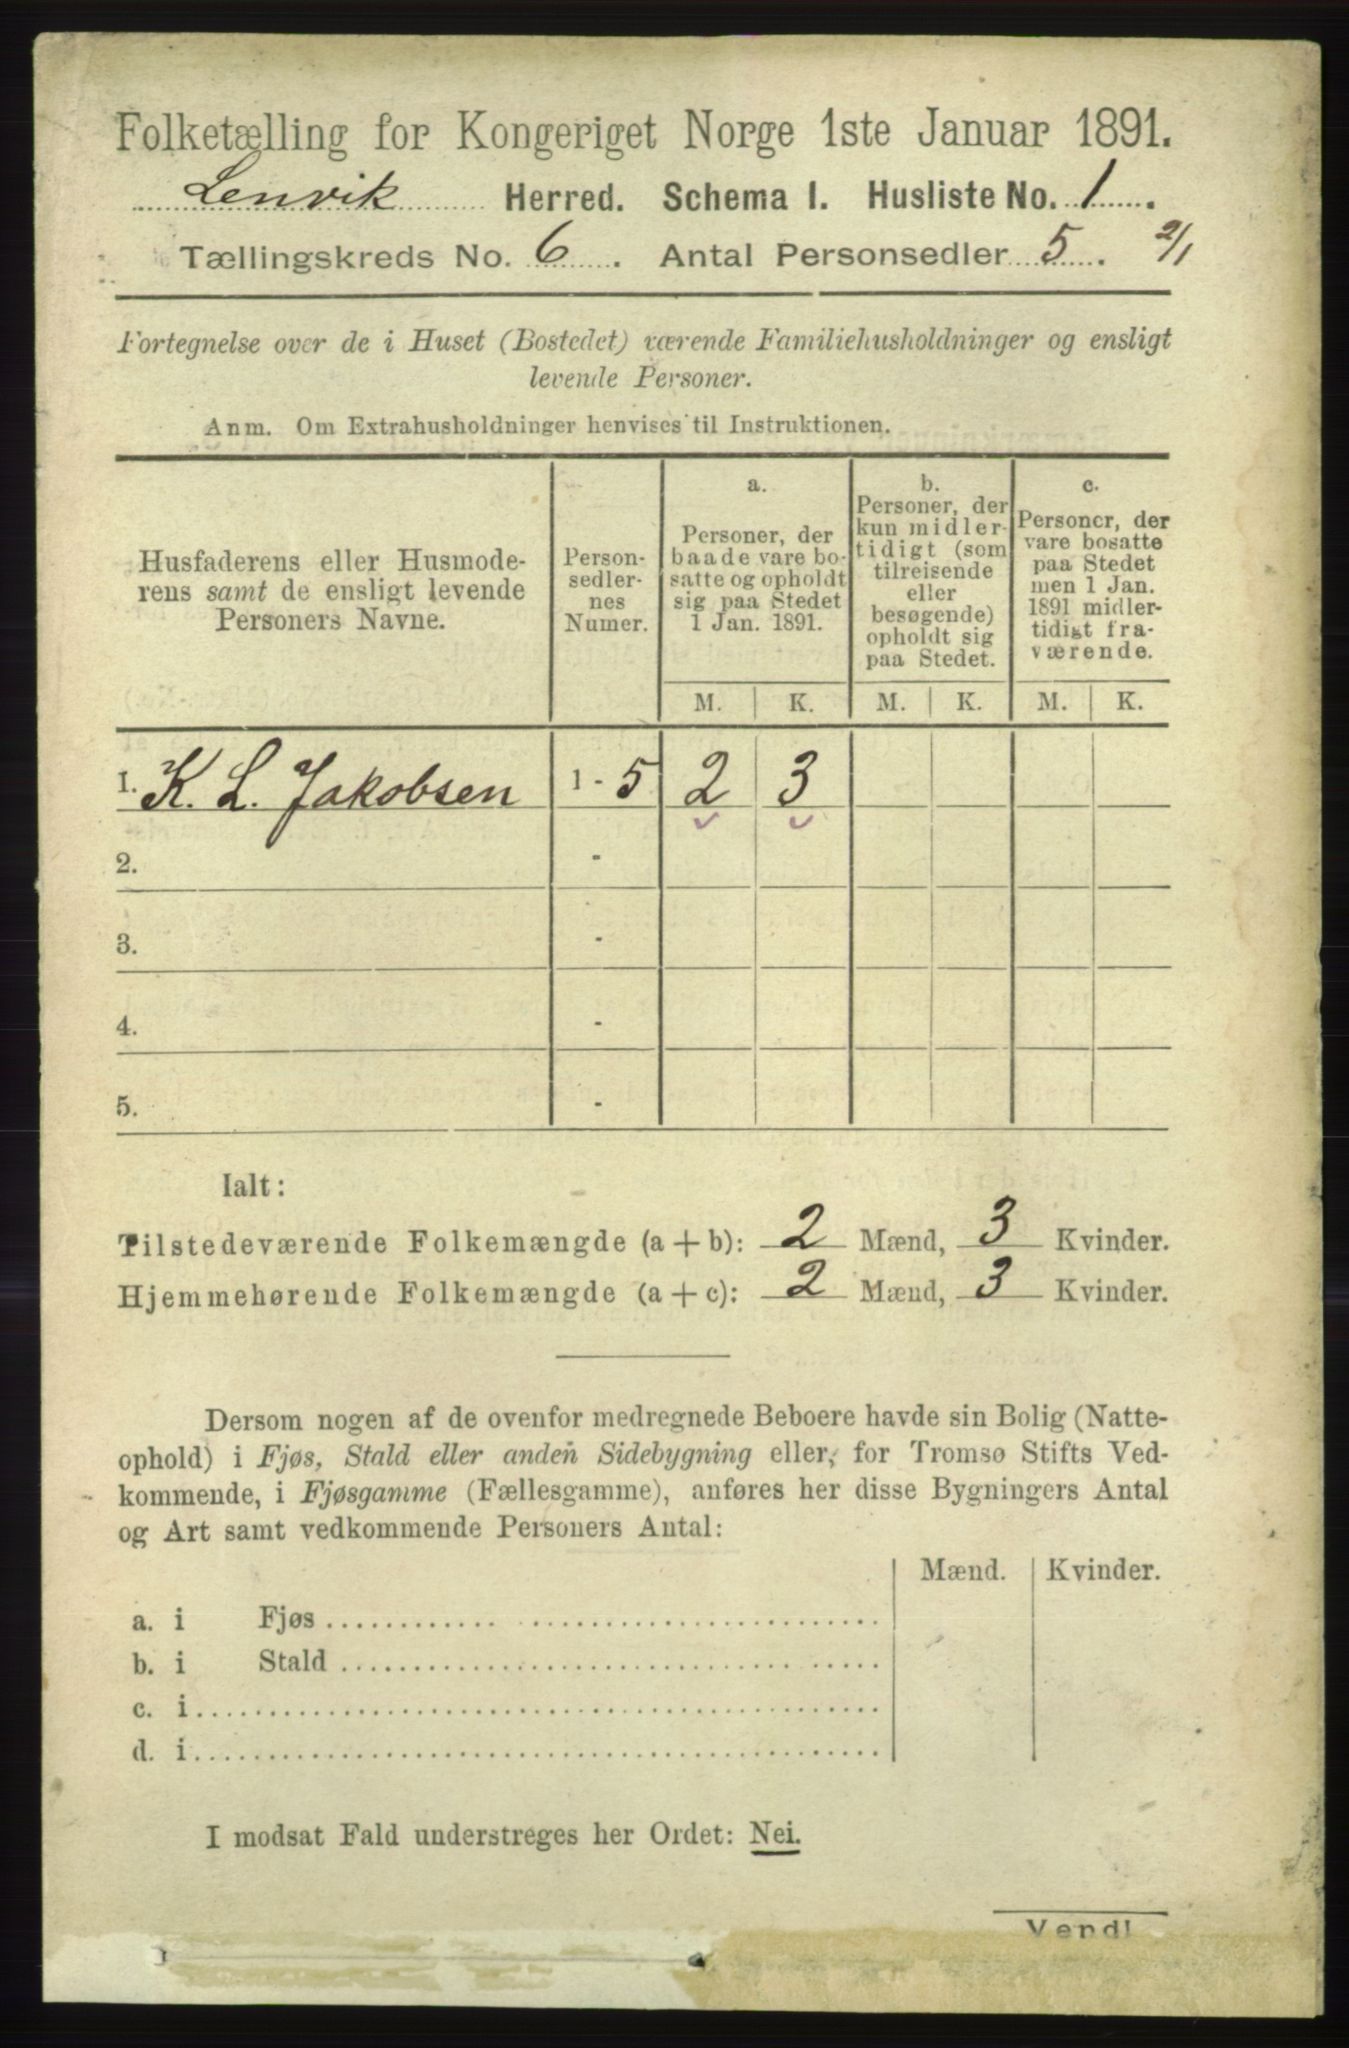 Folketælling for Kongeriget Norge 1ste Januar 1891.
Lenvik Herred. Schema I. Husliste No. 1.
Tællingskreds No. 6. Antal Personsedler 5. 2/1
Fortegnelse over de i Huset (Bostedet) værende Familiehusholdninger og ensligt
levende Personer.
Anm. Om Extrahusholdninger henvises til Instruktionen.
Husfaderens eller Husmode-
rens samt de ensligt levende
Personers Navne.
Person-
sedler-
nes
Numer.
a.
Personer, der
baade vare bo-
satte og opholdt
sig paa Stedet
1 Jan. 1891.
b.
Personer, der
kun midler-
tidigt (som
tilreisende
eller
besøgende)
opholdt sig
paa Stedet.
c.
Personer, der
vare bosatte
paa Stedet
men 1 Jan.
1891 midler-
tidigt fra-
værende.
M. K. M. K. M. K.
1. K. L. Jakobsen 1 - 5 2 3
2. -
3. -
4. -
5. -
Ialt:
Tilstedeværende Folkemængde (a + b): 2 Mænd, 3 Kvinder.
Hjemmehørende Folkemængde (a + c): 2 Mænd, 3 Kvinder.
Dersom nogen af de ovenfor medregnede Beboere havde sin Bolig (Natte-
ophold) i Fjøs, Stald eller anden Sidebygning eller, for Tromsø Stifts Ved-
kommende, i Fjøsgamme (Fællesgamme), anføres her disse Bygningers Antal
og Art samt vedkommende Personers Antal:
Mænd. Kvinder.
a. i Fjøs
b. i Stald
c. i
d. i
I modsat Fald understreges her Ordet: Nei.
Vend!